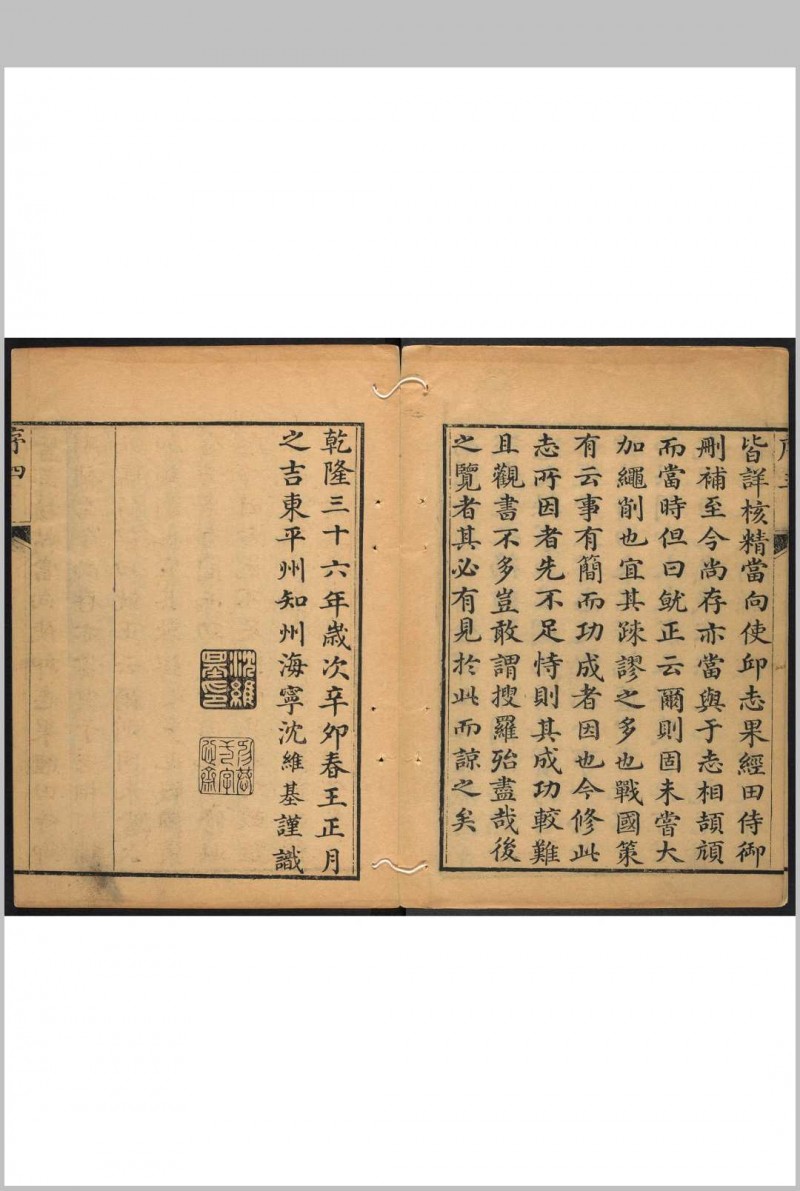 皆詳核精當向使邱志果經田侍御
刪補至今尚存亦當與于志相頡頏
而當時但曰魷正云爾則固未嘗大
加繩削也宜其踈謬之多也戰國策
有云事有簡而功成者因也今修此
志所因者先不足恃則其成功較難
且觀書不多豈敢謂搜羅殆盡哉後
之覽者其必有見於此而諒之矣
乾隆三十六年歲次辛夘春王正月
之吉東平州知州海寧沈維基謹識
沈維
基印
序四